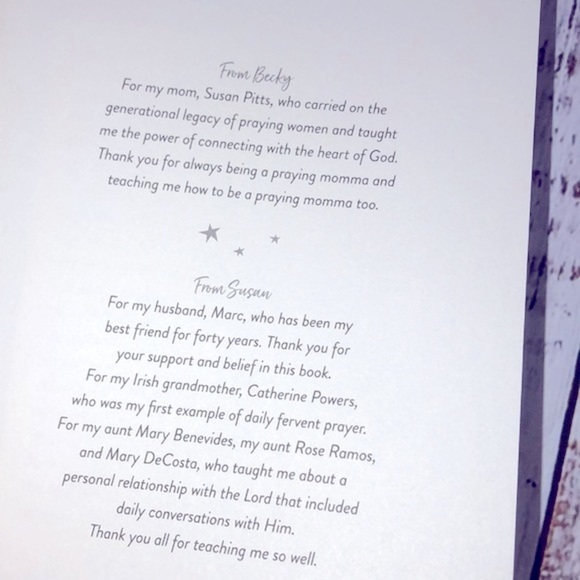 From Becky
For my mom, Susan Pitts, who carried on the
generational legacy of praying women and taught
me the power of connecting with the heart of God.
Thank you for always being a praying momma and
teaching me how to be a praying momma too.
From Susan
For my husband, Marc, who has been my
best friend for forty years. Thank you for
your support and belief in this book.
For my Irish grandmother, Catherine Powers,
who was my first example of daily fervent prayer.
For my aunt Mary Benevides, my aunt Rose Ramos,
and Mary DeCosta, who taught me about a
personal relationship with the Lord that included
daily conversations with Him.
Thank you all for teaching me so well.